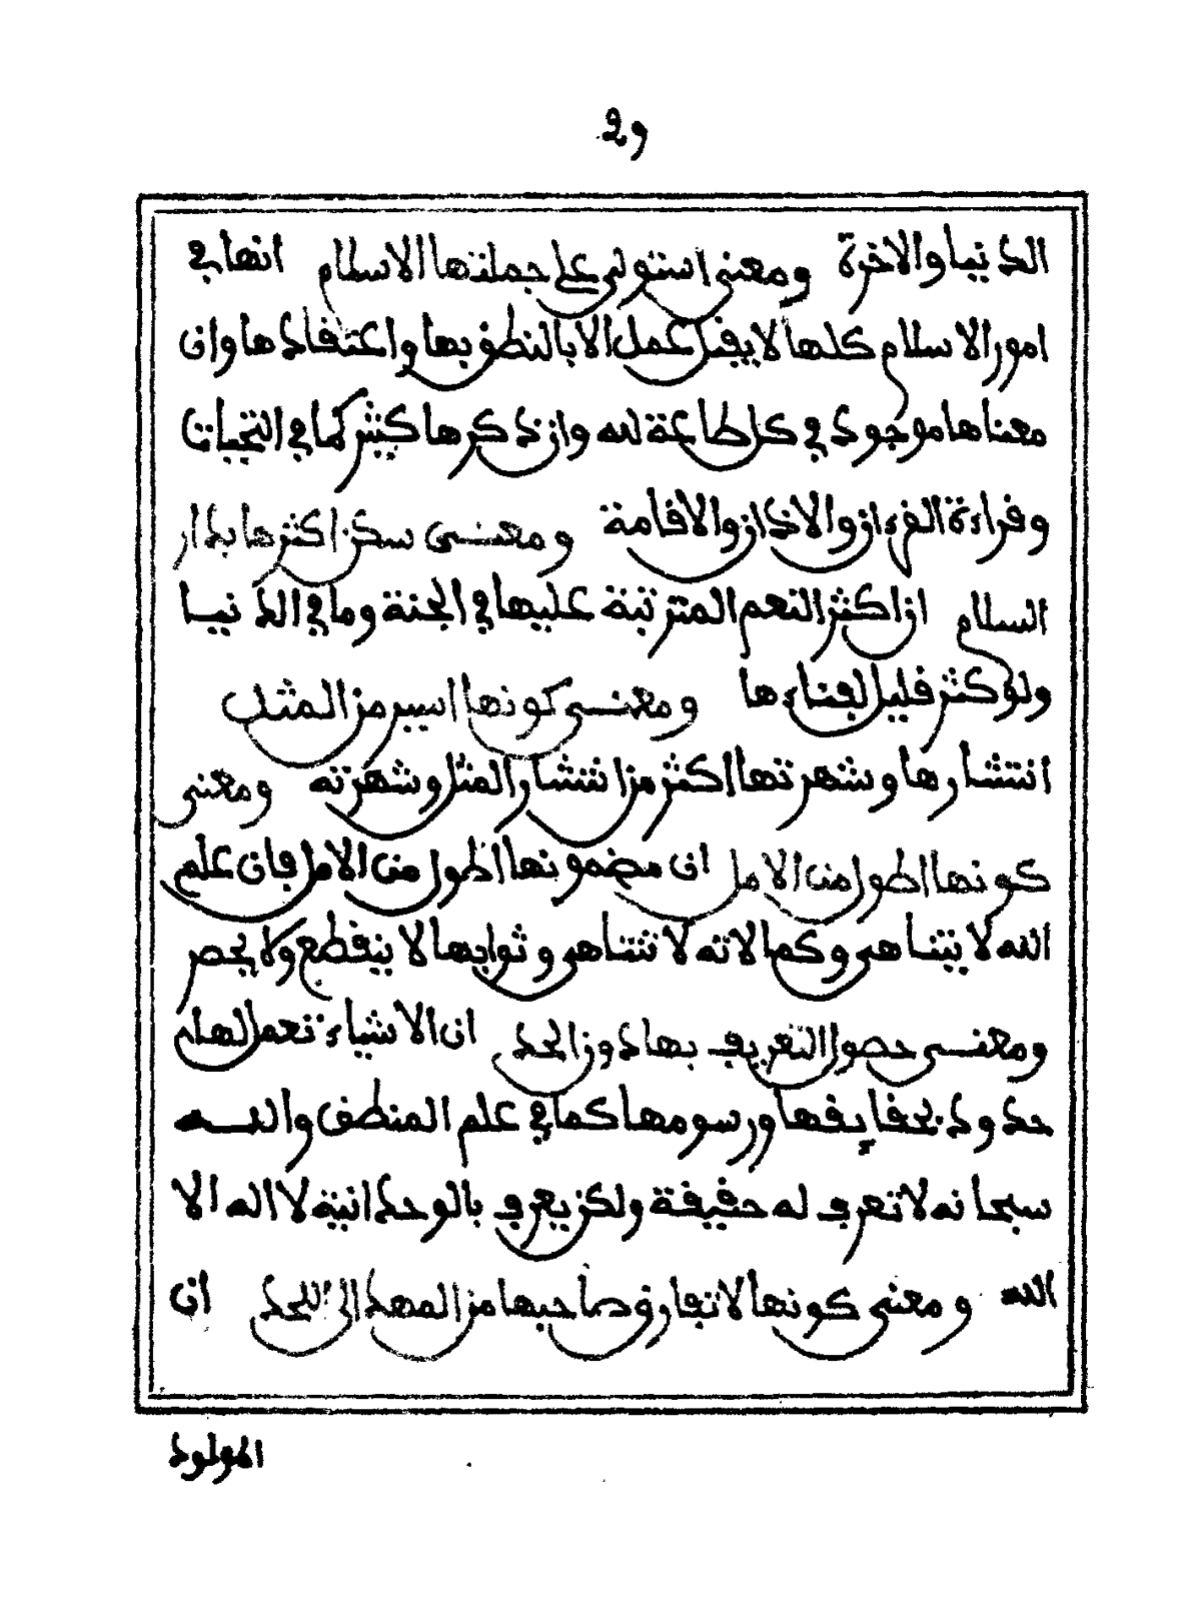 29
الدنيا والاخرة ومعنى استولى على جملتها الاسلام انها في
امور الاسلام كلها لا يقبل عمل الا بالنطق بها واعتقادها وان
معناها موجود في كل طاعة لله وان ذكرها كثير كما في التحيات
وقراءة القرءان والاذان والاقامة ومعنى سكن اكثرها بدار
السلام ان اكثر النعم المترتبة عليها في الجنة وما في الدنيا
ولو كثر قليل لفناءها ومعنى كونها اسير من المثل
انتشارها وشهرتها اكثر من انتشار المثل وشهرته ومعنى
كونها اطول من الامل ان مضمونها اطول من الامل فان علم
الله لا يتناهى وكمالاته لا تتناهى وثوابها لا ينقطع ولا يحصر
ومعنى حصول التعريف بها دون الحد ان الاشياء تعمل لها
حدود بحقايقها ورسومها كما في علم المنطق والله
سبحانه لا تعرف له حقيقة ولكن يعرف بالوحدانية لا اله الا
الله ومعنى كونها لا تفارق صاحبها من المهد الى اللحد ان
المولود